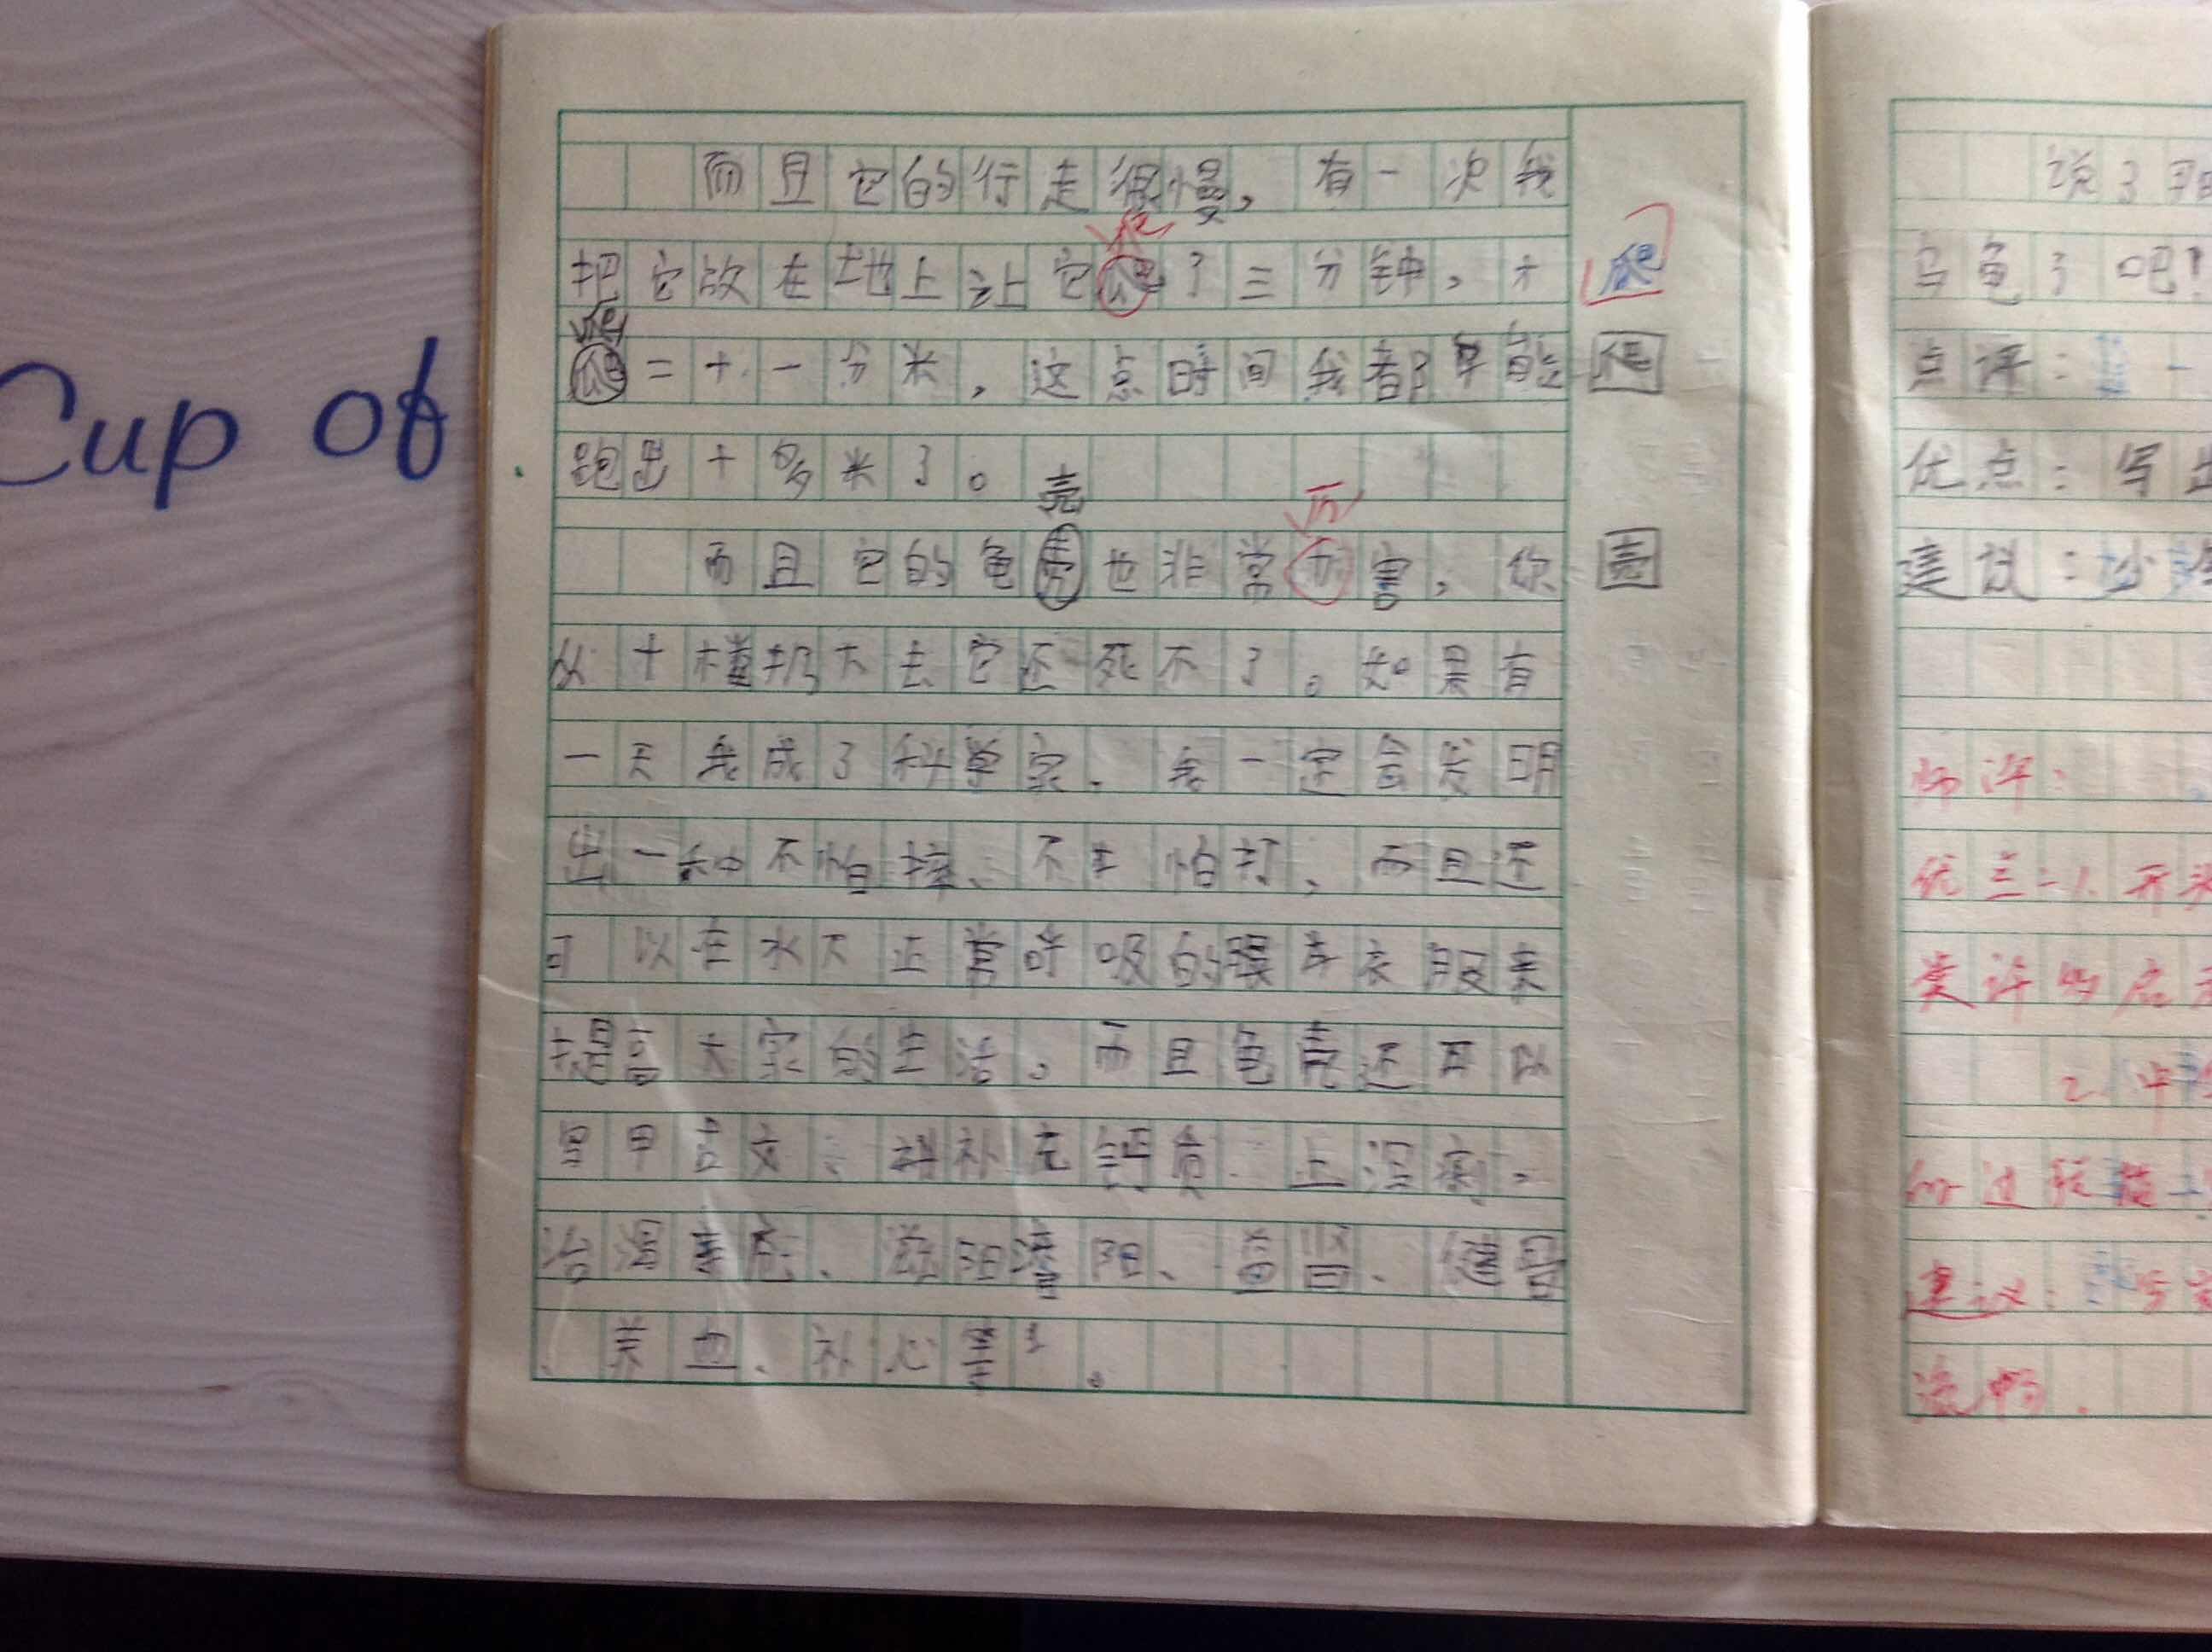 Cup of
而且它的行走很慢,有一次我
爬
把它放在地上让它爬了三分钟,才
爬
爬
爬二十一分米,这点时间我都早能
爬
跑出十多米了。
壳
历
而且它的龟壳也非常厉害,你
壳
从十楼扔下去它还死不了。如果有
一天我成了科学家、我一定会发明
出一种不怕摔、不怕打、而且还
可以在水下正常呼吸的衣服来
提高大家的生活。而且龟壳还可以
写甲骨文、补充钙质、止泻痢。
治、阳阳、健骨
、养血、补心等。
说了
乌龟了吧!
点评:
优点:写出
建议:
师评:
1.开头
2.中
建议:
流畅.